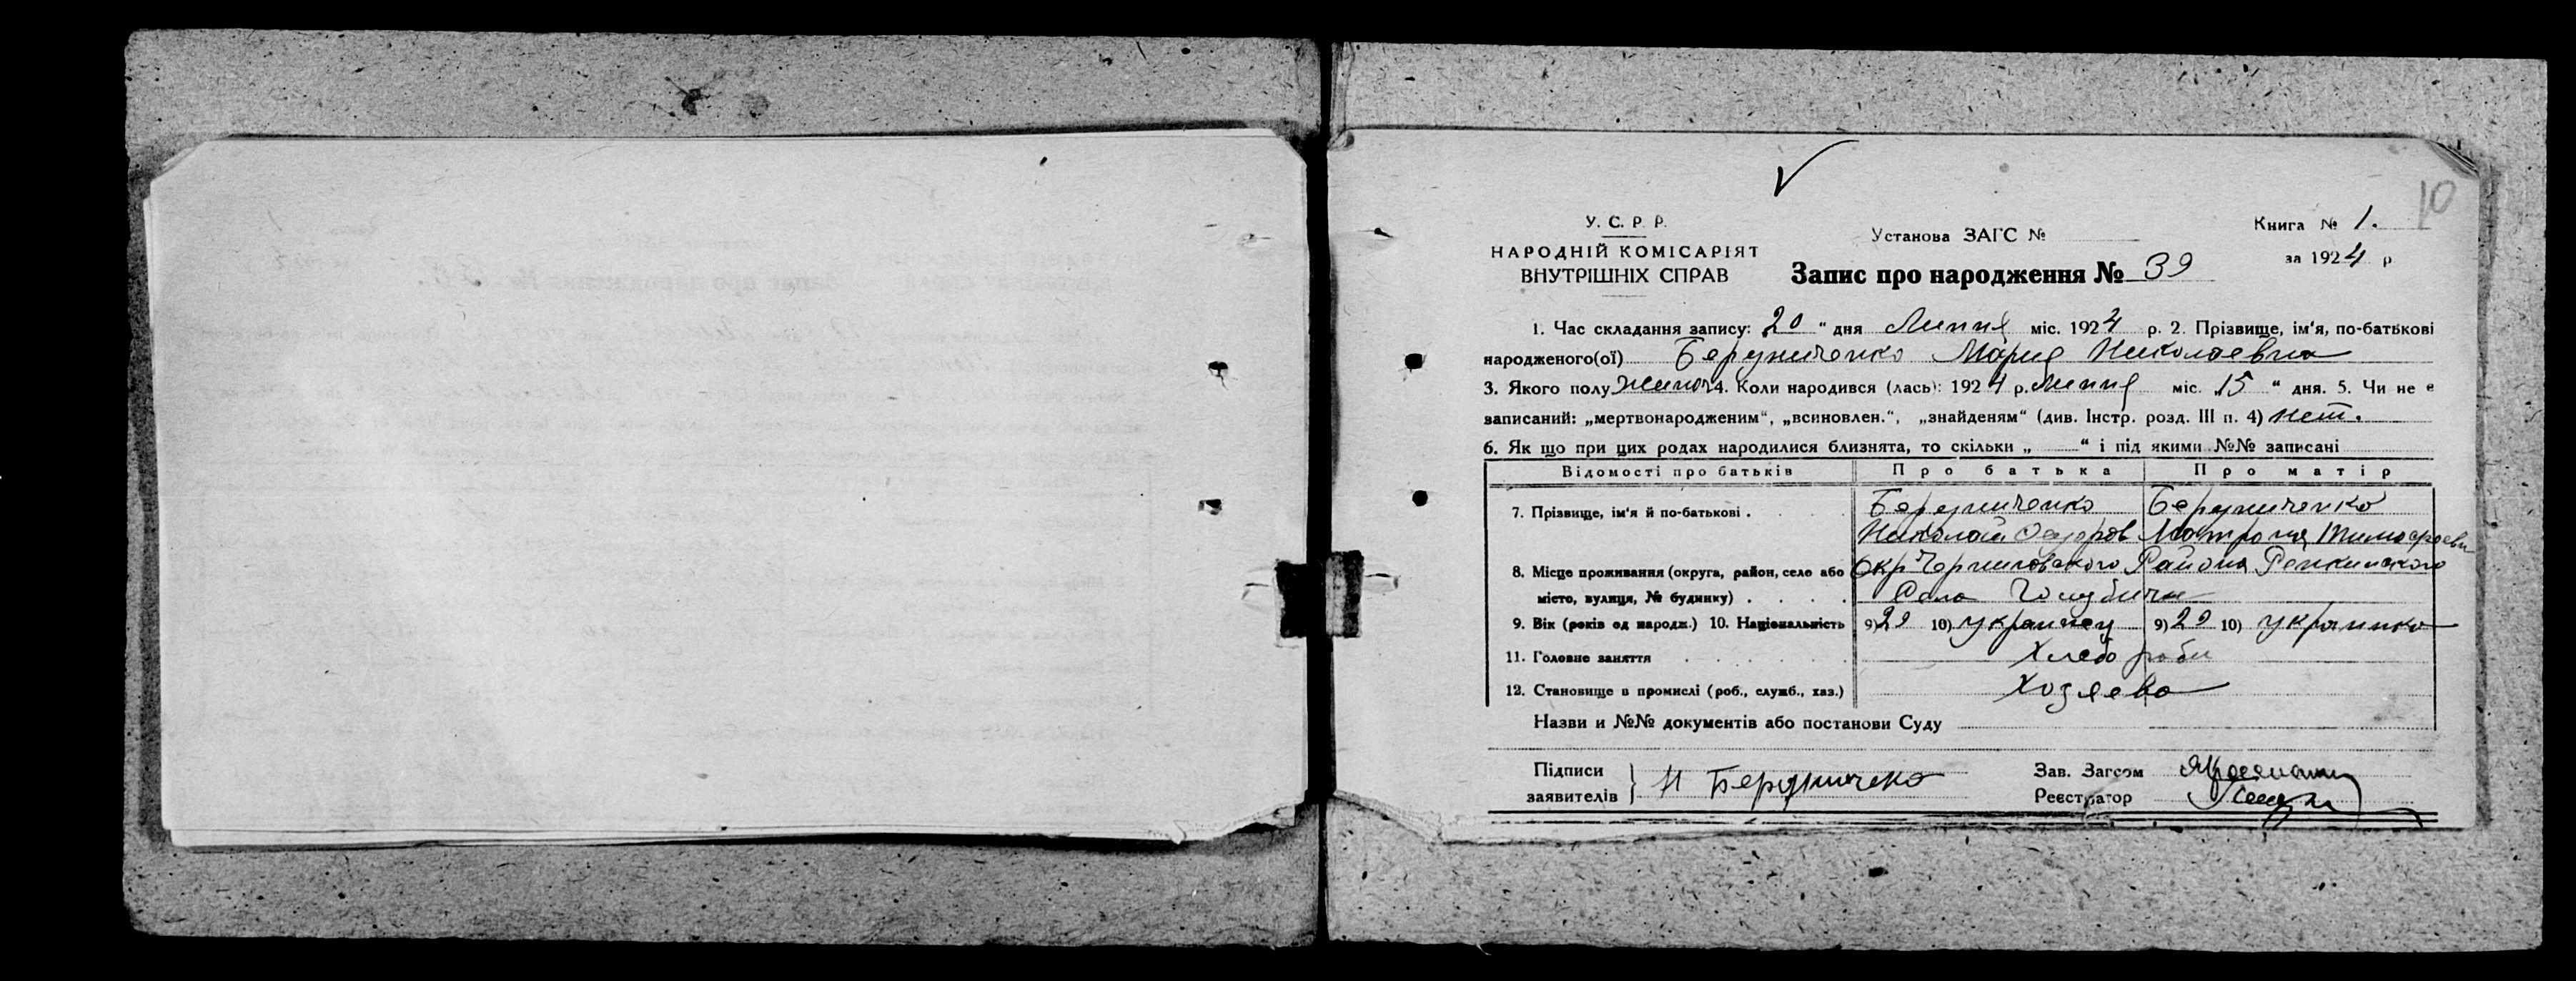 10
У. С. Р. Р.
НАРОДНІЙ КОМІСАРІЯТ
ВНУТРІШНІХ СПРАВ
Установа ЗАГС №
Запис про народження № 39
Книга № 1.
за 1924 р
1. Час складання запису: 20 " дня Липня міс. 1924 р. 2. Прізвище, ім'я, по-батькові
народженого(ої) Бердниченко Мария Николаевна
3. Якого полу Жиноч 4. Коли народився (лась): 1924 р. Липня міс. „15 " дня. 5. Чи не є
записаний: „мертвонародженим", „всиновлен.", „знайденям" (див. Інстр. розд. III п. 4) нет.
6. Як що при цих родах народилися близнята, то скільки „ " і під якими №№ записані
Відомості про батьків Про батька Про матір
7. Прізвище, ім'я й по-батькові . Бердниченко Бердниченко
Николай Федоров Матрона Тимофеевн
8. Місце проживання (округа, район, село або Окр Черниговского Района Репкинского
місто, вулиця, № будинку) . Село Голубичи
9. Вік (років од народж.) 10. Національність 9) 29 10) Украинец 9) 29 10) Украинка
11. Головне заняття Хлебороби
12. Становище в промислі (роб., служб., хаз.) Хозяева
Назви и №№ документів або постанови Суду
Підписи
заявителів } Н Бердниченко
Зав. Загсом
Реєстратор